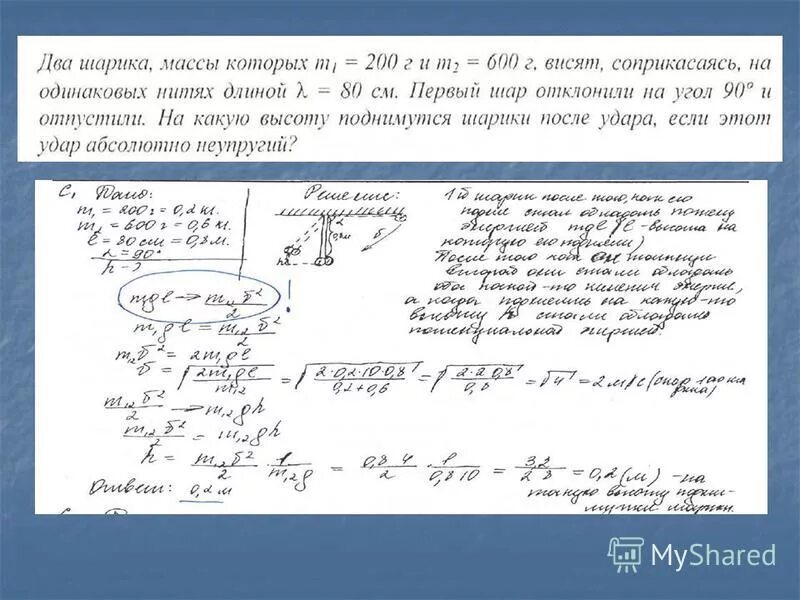 Два шарика, массы которых m₁ = 200 г и m₂ = 600 г, висят, соприкасаясь, на
одинаковых нитях длиной λ = 80 см. Первый шар отклонили на угол 90° и
отпустили. На какую высоту поднимутся шарики после удара, если этот
удар абсолютно неупругий?
C₁ Дано:
m₁ = 200 г = 0,2 кг.
m₂ = 600 г = 0,6 кг.
l = 80 см = 0,8 м.
α = 90°
h - ?
Решение:
α
0,8м
h
1й шарик после того, как его
энергией mgl (l - высота на
которую его подняли)
После того как он
а когда поднялись на какую-то
высоту h стали обладать
потенциальной энергией.
mgl → m₁,₂ v²/2 !
m₁gl = m₁,₂ v²/2
m₁,₂ v² = 2m₁gl
v = √(2m₁gl/m₁,₂) = √(2·0,2·10·0,8/0,2+0,6) = √(2·2·0,8/0,8) = √4 = 2 м/с
m₁,₂ v²/2 → m₁,₂ gh
m₁,₂ v²/2 = m₁,₂ gh
h = m₁,₂ v²/2 · 1/m₁,₂g = 0,8·4/2 · 1/0,8·10 = 3,2/2·8 = 0,2 (м) - на
такую высоту
шарики.
Ответ: 0,2 м
MyShared